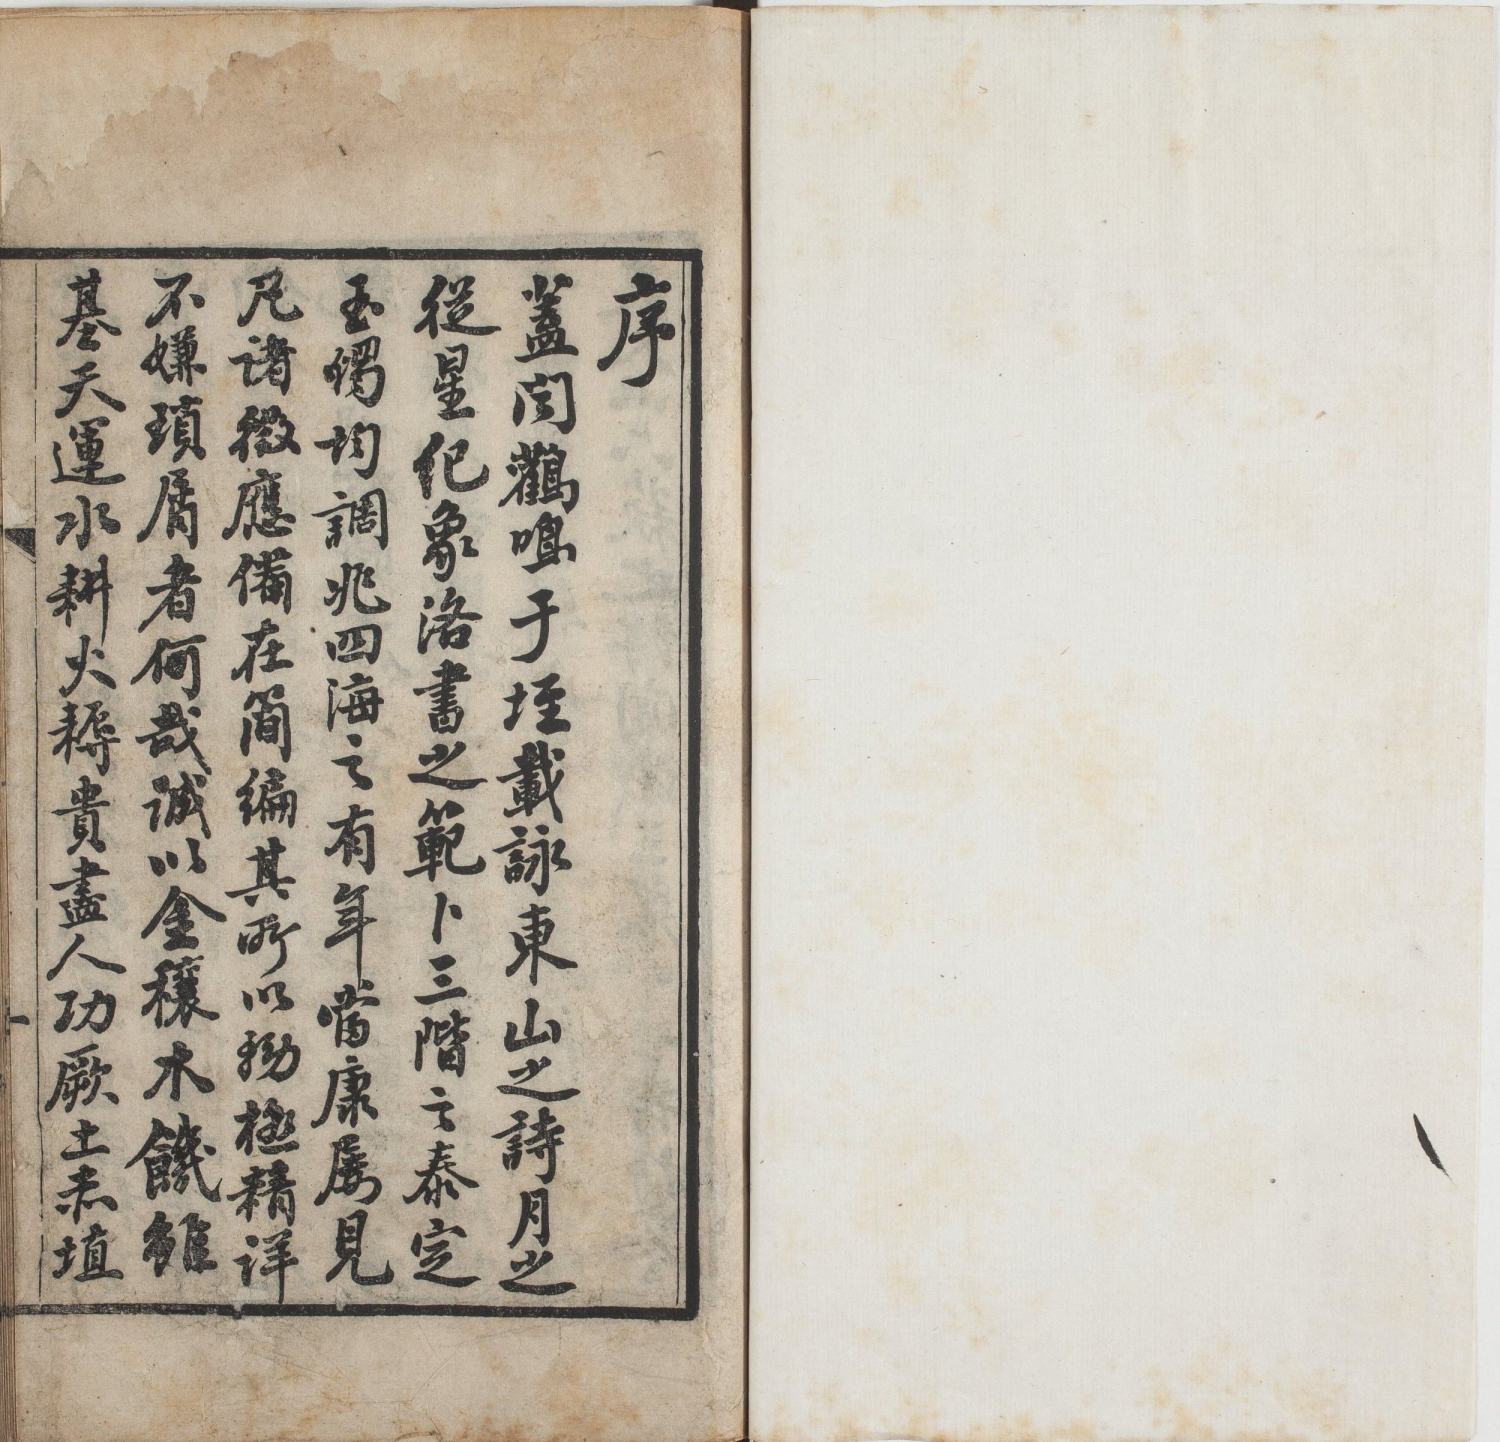 序
蓋聞鸛鳴于垤載詠東山之詩月之
從星化象洛書之範卜三階之泰定
玉燭均調兆四海之有年嘗康屢見
凡諸徵應備在簡編其所以極精詳
不嫌瑣屑者何哉誠以金穰水饑雖
基天運水耕火耨貴盡人功厥土赤埴